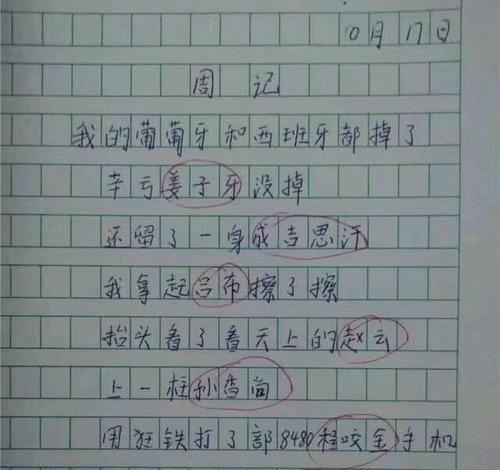 10月17日
周记
我的葡葡牙和西班牙都掉了
辛亏姜子牙没掉
还留了一身成吉思汗
我拿起吕布擦了擦
抬头看了看天上的赵云
上一柱孙香尚
用狂铁打了部8480程咬金手机